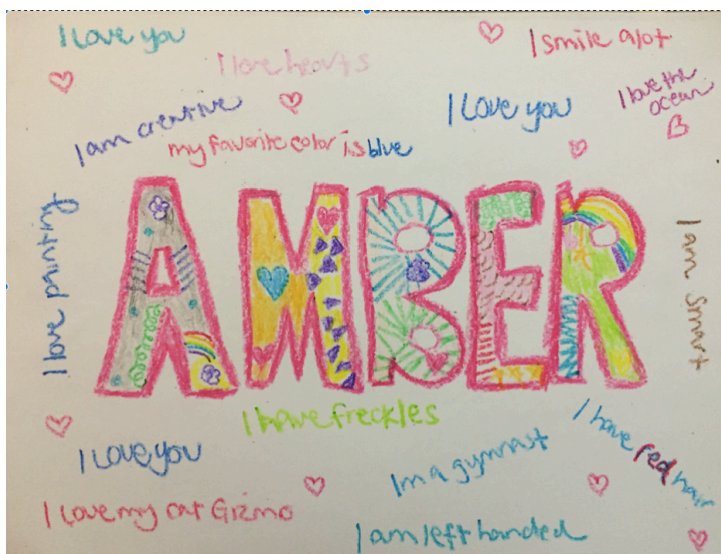 I love you
I smile alot
I love hearts
I love the
ocean
I am creative
I love you
my favorite color is blue
I love painting
AMBER
I am smart
I have freckles
I have red hair
I love you
Im a gymnast
I love my cat Gizmo
I am left handed